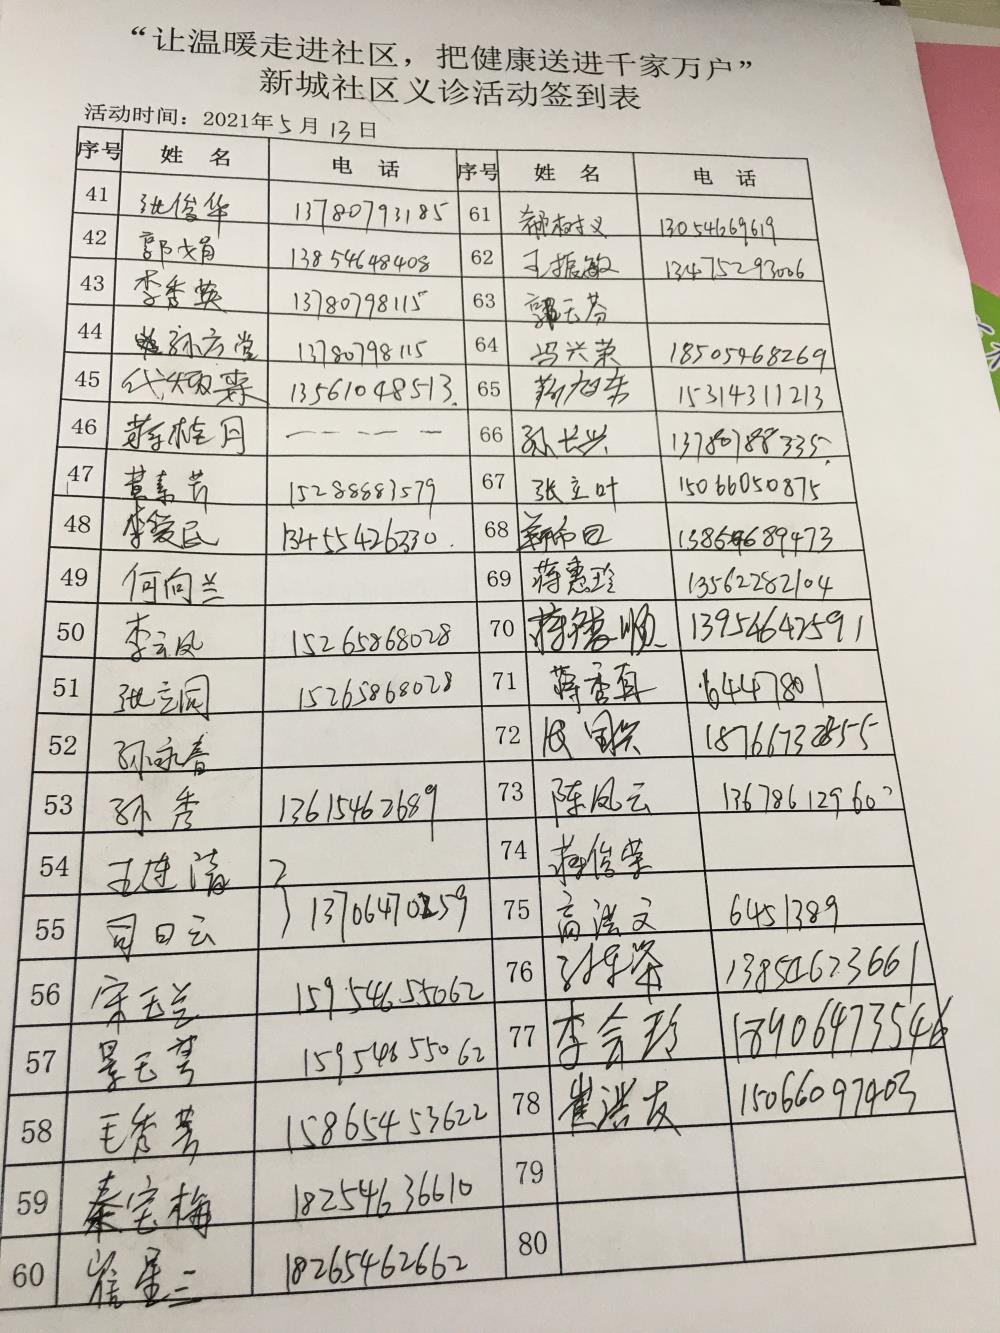 “让温暖走进社区，把健康送进千家万户”
新城社区义诊活动签到表
活动时间：2021年5月13日
序号 姓 名 电 话 序号 姓 名 电 话
41 张俊华 13780793185 61 13054669619
42 郭成娟 13854648408 62 王振敏 13475293006
43 李秀英 13780798115 63 郭云芬
44 孙云堂 13780798115 64 冯兴荣 18505468269
45 13561048513. 65 15314311213
46 蒋桂月 一 一 一 一 66 孙长兴 13780788335.
47 15288883579 67 张立叶 15066050875
48 李爱民 13455426330. 68
49 何向兰 69 蒋惠玲 13562282104
50 李云凤 15265868028 70 13954647591
51 张立同 15265868028 71 6447801
52 孙永春 72
53 孙秀 13615462689 73 陈凤云
54 王连清 74 蒋俊荣
55 司日云 75 高洪文 6451389
56 宋玉兰 15954655062 76 13854623661
57 景玉芳 15954655062 77 李会珍 18906473546
58 王秀芳 15865453622 78 崔洪友 15066097403
59 秦宝梅 18254636610 79
60 18265462662 80